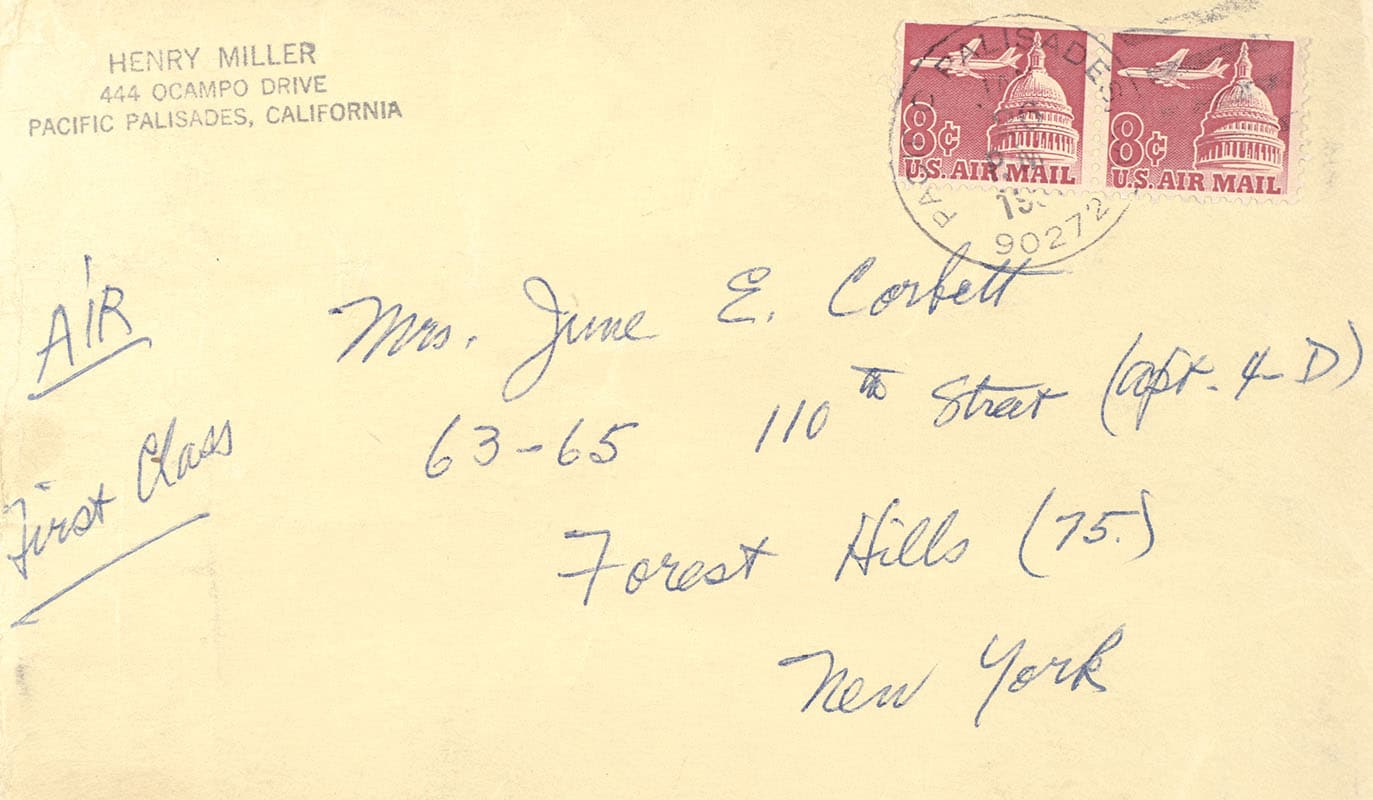 HENRY MILLER
444 OCAMPO DRIVE
PACIFIC PALISADES, CALIFORNIA
8¢
U.S. AIR MAIL
8¢
U.S. AIR MAIL
PALISADES
90272
AIR
First Class
Mrs. June E. Corbett
63-65 110th Street (apt. 4-D)
Forest Hills (75.)
New York